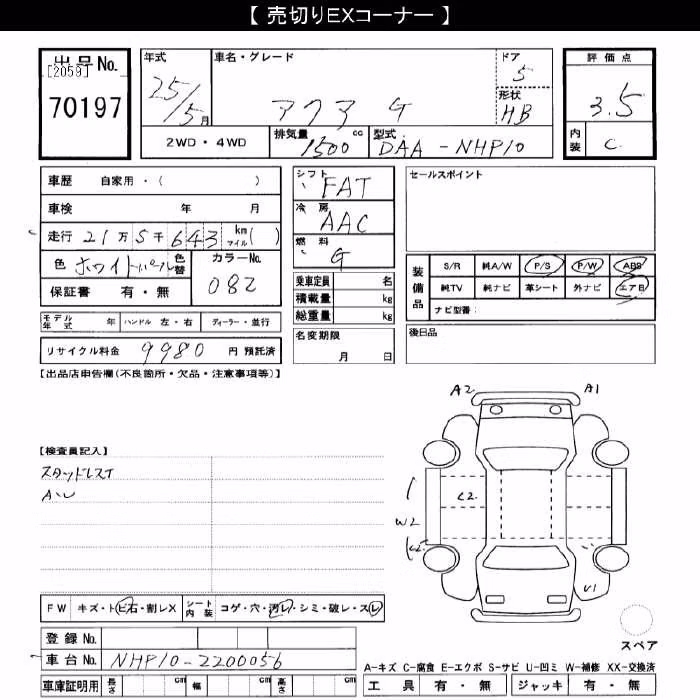 【 売切りEXコーナー 】
出品No.
[2059]
70197
年式
25/5月
車名・グレード
アクア G
ドア
5
形状
HB
評価点
3.5
内装
C
2WD・4WD
排気量
1500 cc
型式
DAA-NHP10
車歴 自家用・( )
車検 年 月
走行 21万5千643 km マイル( )
色 ホワイトパール 色替
カラーNo.
082
保証書 有・無
シフト
FAT
冷房
AAC
燃料
G
乗車定員 名
積載量 kg
総重量 kg
セールスポイント
装備品
S/R 純A/W P/S P/W ABS
純TV 純ナビ 革シート 外ナビ エアB
ナビ型番:
モデル年式 年 ハンドル 左・右 ディーラー・並行
リサイクル料金 9980 円 預託済
名変期限
月 日
後日品
【出品店申告欄(不良箇所・欠品・注意事項等)】
A2 A1
【検査員記入】
スタッドレスT
A・W
C2
W2
U1
FW キズ・トビ石・割レX
シート内装 コゲ・穴・汚レ・シミ・破レ・スレ
登録No.
車台No. NHP10-2200056
車庫証明用 長さ cm 幅 cm 高さ cm
スペア
A-キズ C-腐食 E-エクボ S-サビ U-凹ミ W-補修 XX-交換済
工具 有・無 ジャッキ 有・無